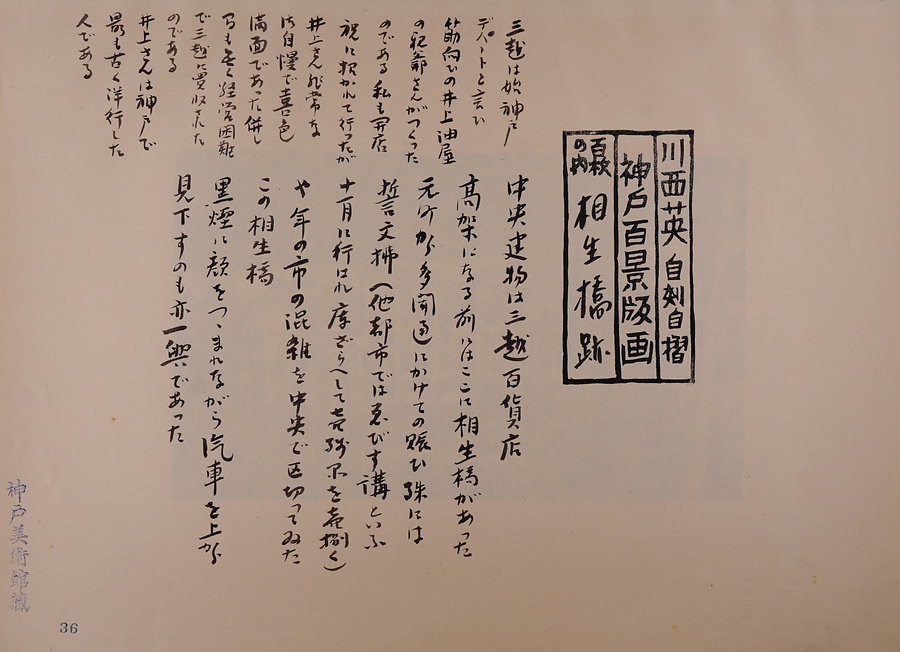 川西英 自刻自摺
神戸百景版画
百枚の内 相生橋跡
中央建物は三越百貨店
高架になる前にはここに相生橋があった
元町から多聞通にかけての賑ひ殊には
誓文拂(他都市ではゑびす講といふ
十一月に行はれ庫ざらへして売残品を売捌く)
や年の市の混雑を中央で区切ってゐた
この相生橋
黒煙に顔をつゝまれながら汽車を上から
見下すのも亦一興であった
三越は始神戸
デパートと言ひ
筋向ひの井上油屋
の親爺さんがつくった
のである 私も開店
祝に招かれて行ったが
井上さん非常な
御自慢で喜色
満面であった併し
間もなく経営困難
で三越に買収された
のである
井上さんは神戸で
最も古く洋行した
人である
神戸美術館蔵
36